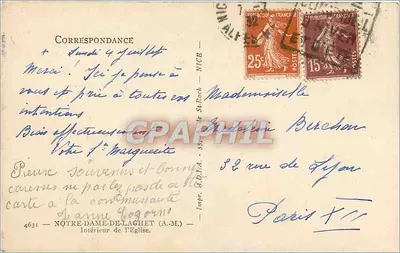 CORRESPONDANCE
+ Lundi 4 juillet
Merci! Ici je pense à
vous et prie à toutes vos
intentions
Bien affectueusement
Votre Sr Marguerite
Pieux souvenirs et bonnes
ne parlez pas de
carte à la communauté
Jeanne
4631 - NOTRE-DAME-DE-LAGHET (A.-M.)
Intérieur de l'Eglise.
Impr. St-Roch - NICE
NICE
25c
POSTES
15c
POSTES
Mademoiselle
Madeleine Berchon
32 rue de Lyon
Paris XII
CPARAMA